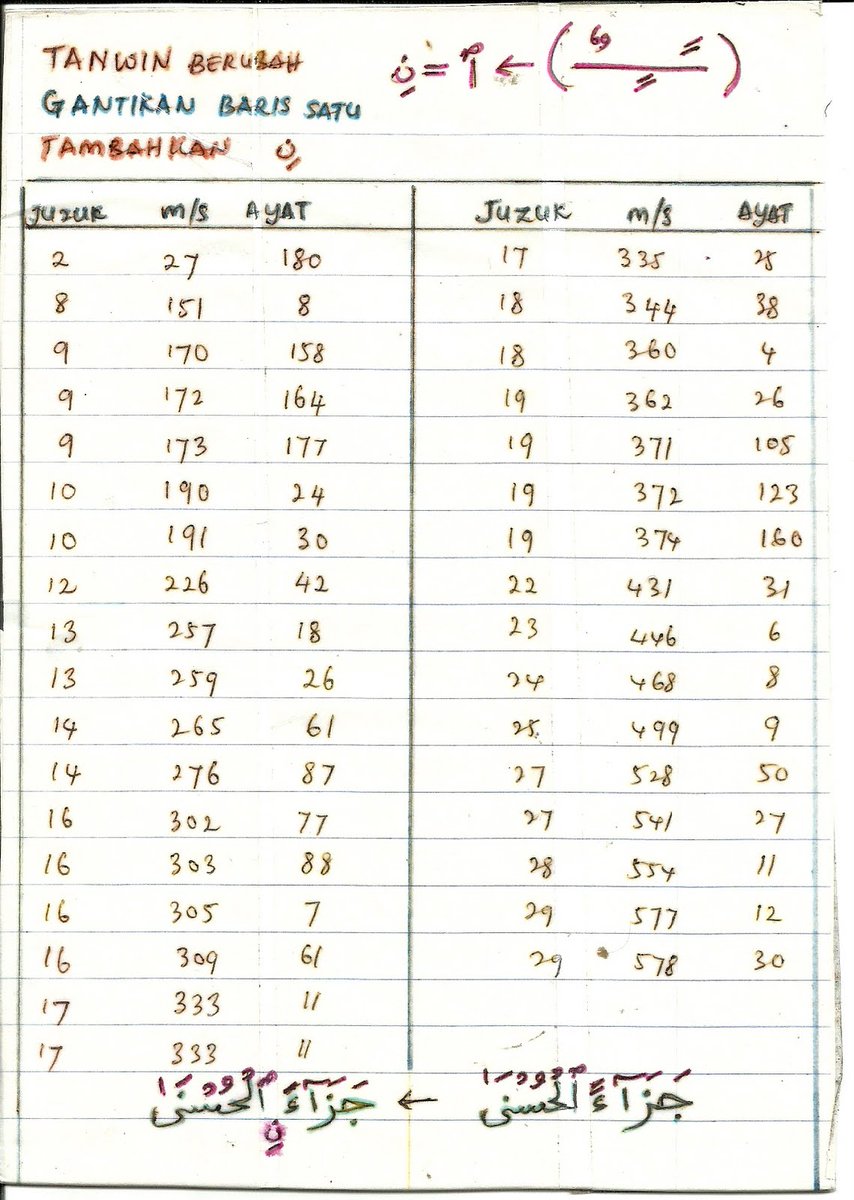 TANWIN BERUBAH
GANTIKAN BARIS SATU
TAMBAHKAN نِ
JUZUK m/s AYAT JUZUK m/s AYAT
2 27 180 17 335 25
8 151 8 18 344 38
9 170 158 18 360 4
9 172 164 19 362 26
9 173 177 19 371 105
10 190 24 19 372 123
10 191 30 19 374 160
12 226 42 22 431 31
13 257 18 23 446 6
13 259 26 24 468 8
14 265 61 25 499 9
14 276 87 27 528 50
16 302 77 27 541 27
16 303 88 28 554 11
16 305 7 29 577 12
16 309 61 29 578 30
17 333 11
17 333 11
جَزَآءً ٱلْحُسْنَىٰ ← جَزَآءَ نِ ٱلْحُسْنَىٰ